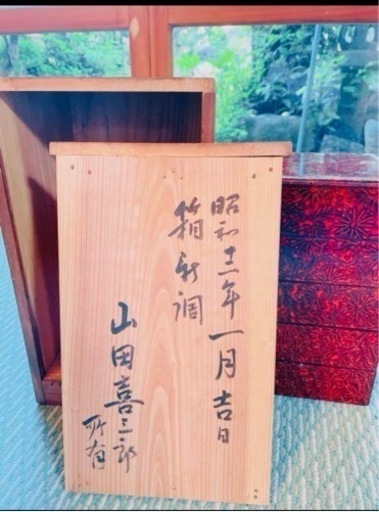 昭和十一年一月吉日
箱新調
山田喜三郎
所有